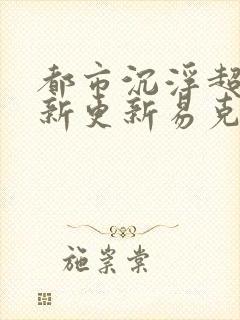 都市沉浮超
新更新易克
施崇棠